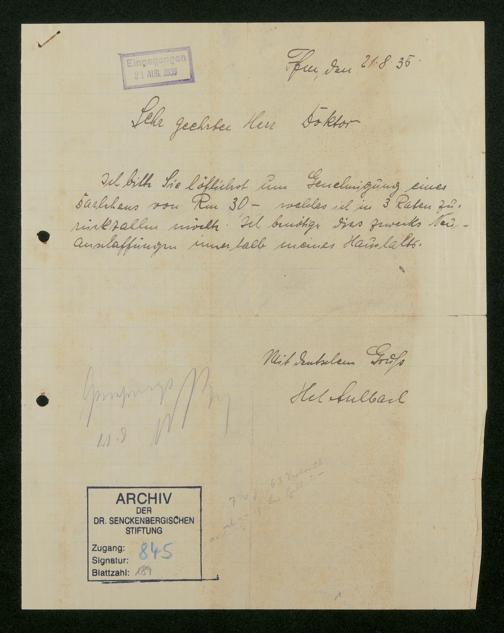 Eingegangen
21 AUG. 1935
Ffm, den 21.8.35.
Sehr geehrter Herr Doktor
Ich bitte Sie höflichst um Genehmigung eines
Darlehens von Rm 30 – welches ich in 3 Raten zu-
rückzahlen möchte. Ich benötige dies zwecks Neu-
anschaffungen innerhalb meines Haushalts.
Mit deutschem Gruß
Aulbach
ARCHIV
DER
DR. SENCKENBERGISCHEN
STIFTUNG
Zugang: 845
Signatur:
Blattzahl: